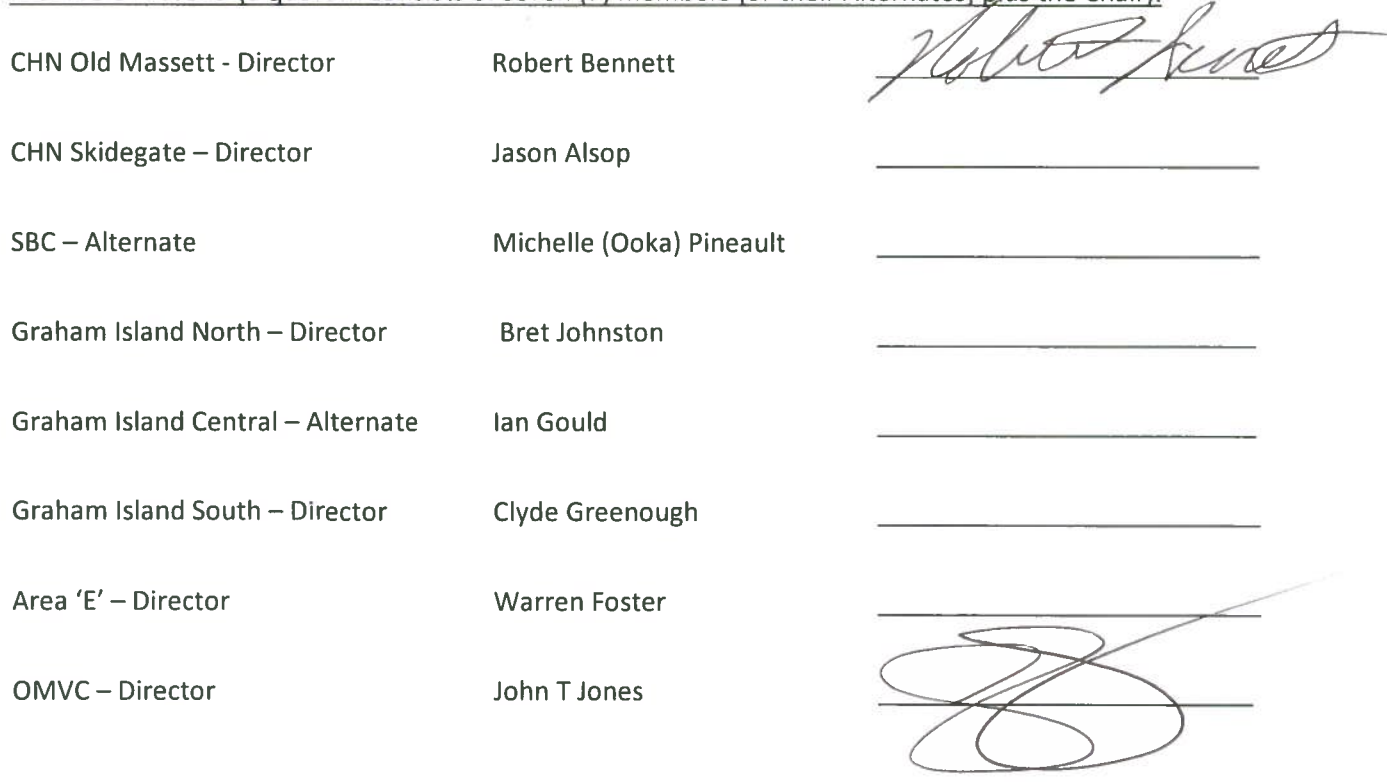 members (or their Alternates, plus the Chair):
CHN Old Massett - Director Robert Bennett Robert Bennett
CHN Skidegate – Director Jason Alsop
SBC – Alternate Michelle (Ooka) Pineault
Graham Island North – Director Bret Johnston
Graham Island Central – Alternate Ian Gould
Graham Island South – Director Clyde Greenough
Area ‘E’ – Director Warren Foster
OMVC – Director John T Jones